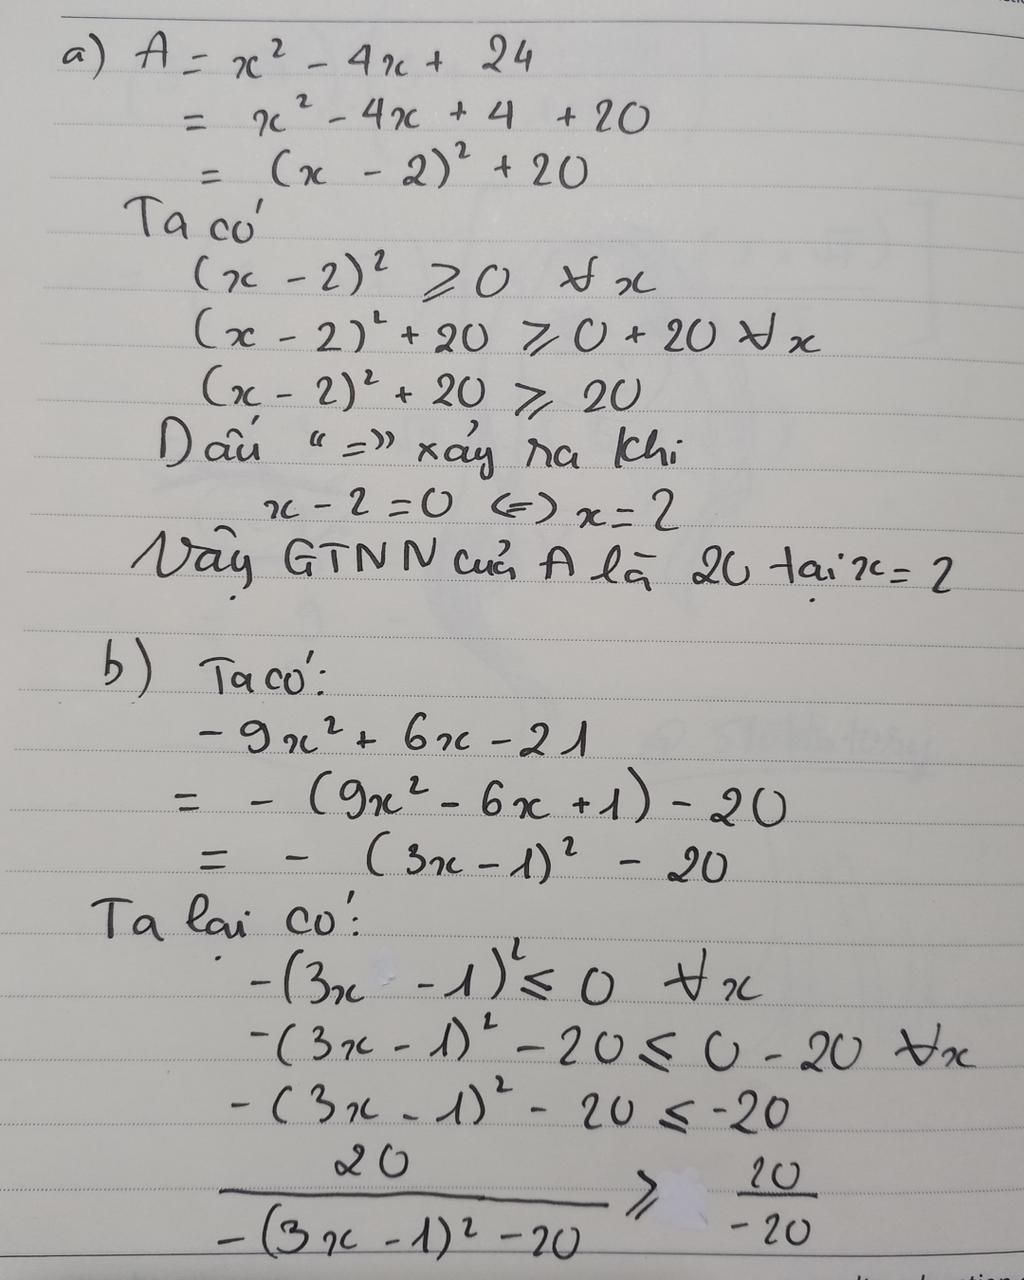 a) A = x² - 4x + 24
= x² - 4x + 4 + 20
= (x - 2)² + 20
Ta có
(x - 2)² ⩾ 0 ∀x
(x - 2)² + 20 ⩾ 0 + 20 ∀x
(x - 2)² + 20 ⩾ 20
Dấu "=" xảy ra khi
x - 2 = 0 <=> x = 2
Vậy GTNN của A là 20 tại x = 2
b) Ta có:
- 9x² + 6x - 21
= - (9x² - 6x + 1) - 20
= - (3x - 1)² - 20
Ta lại có:
-(3x - 1)² ⩽ 0 ∀x
-(3x - 1)² - 20 ⩽ 0 - 20 ∀x
-(3x - 1)² - 20 ⩽ -20
20 / (-(3x - 1)² - 20) ⩾ 20 / -20